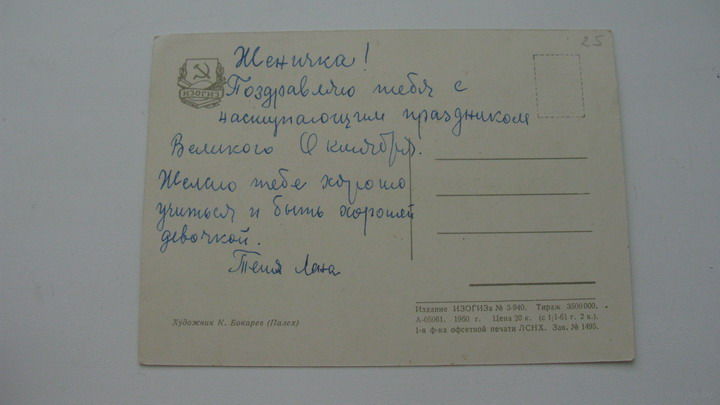 25
Женичка!
Поздравляю тебя с
наступающим праздником
Великого Октября.
Желаю тебе хорошо
учиться и быть хорошей
девочкой.
Тетя Лена
ИЗОГИЗ
Художник К. Бокарев (Палех)
Издание ИЗОГИЗа № 3-940. Тираж 3500000.
А-05061. 1960 г. Цена 20 к. (с 1/I-61 г. 2 к.).
1-я ф-ка офсетной печати ЛСНХ. Зак. № 1495.